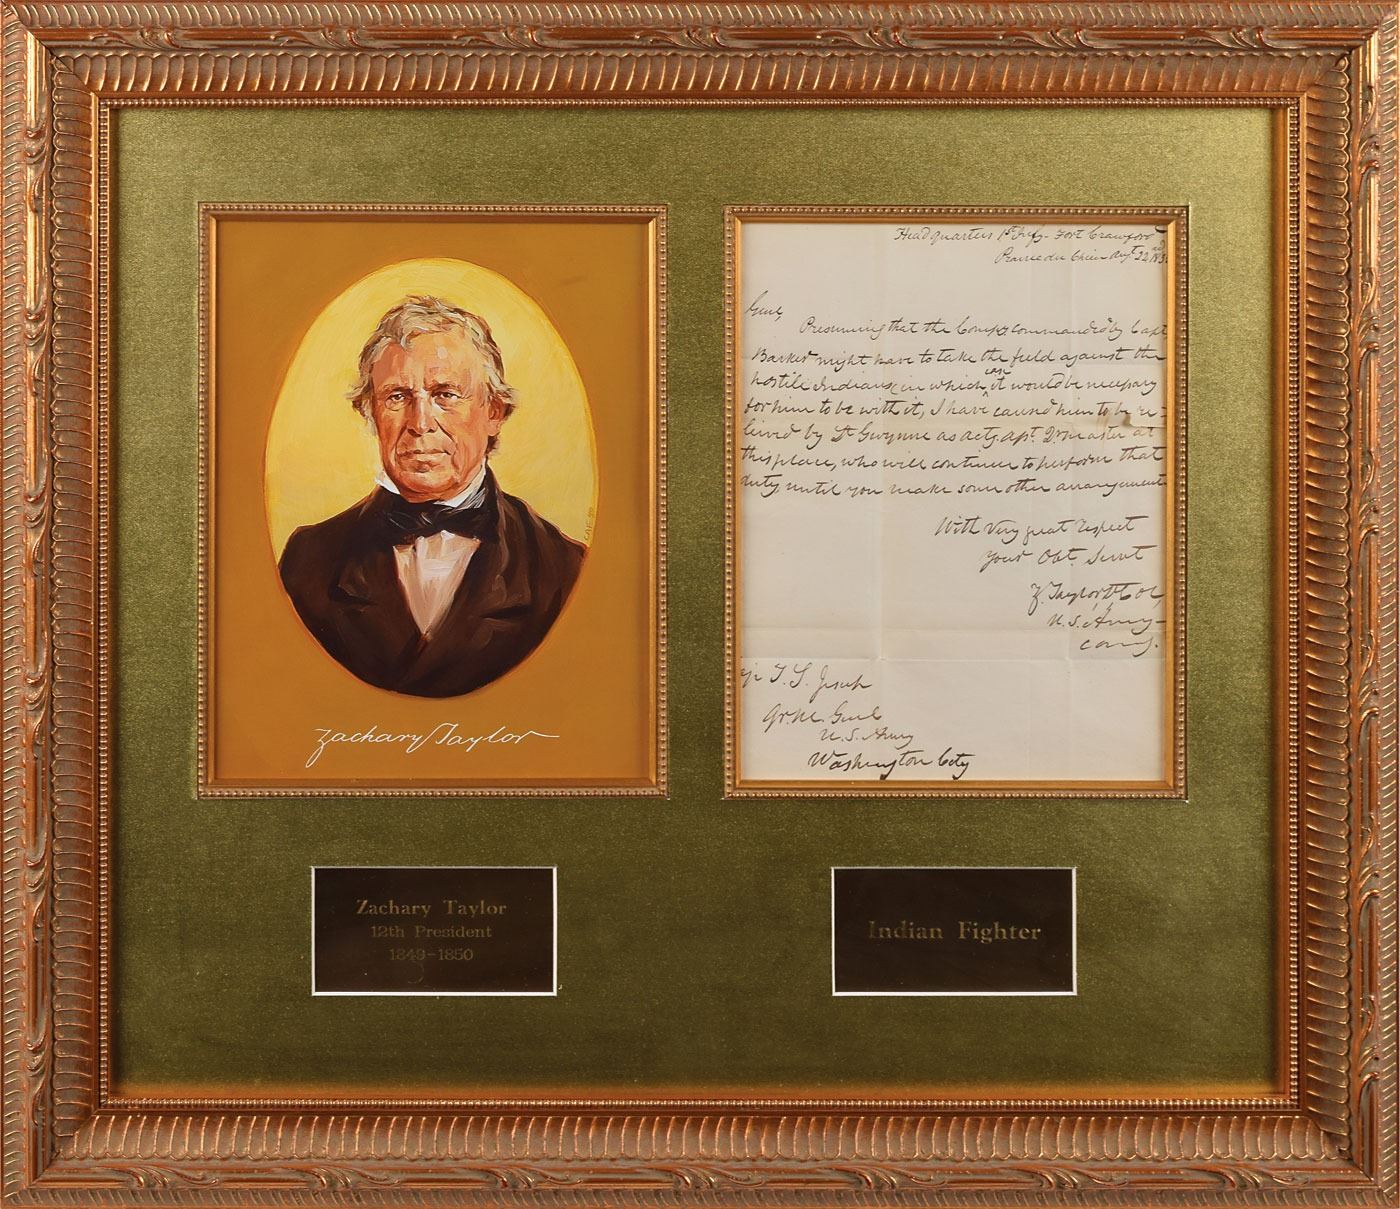 Zachary Taylor
Head quarters 1st Infy. Fort Crawford
Prairie du Chien Augt 22nd 183
Genl,
Presuming that the Compy commanded by Capt
Barker might have to take the field against the
hostile Indians (in which case it would be necessary
for him to be with it, I have caused him to be re-
leived by Lt Gwynne as actg. asst. Qr. master at
this place, who will continue to perform that
duty until you make some other arrangement
With very great respect
your Obt. Servt
Z. Taylor Lt Col,
U.S. Army
comg.
T. S. Jesup
Qr. M. Genl
U.S. Army
Washington City
Zachary Taylor
12th President
1849-1850
Indian Fighter